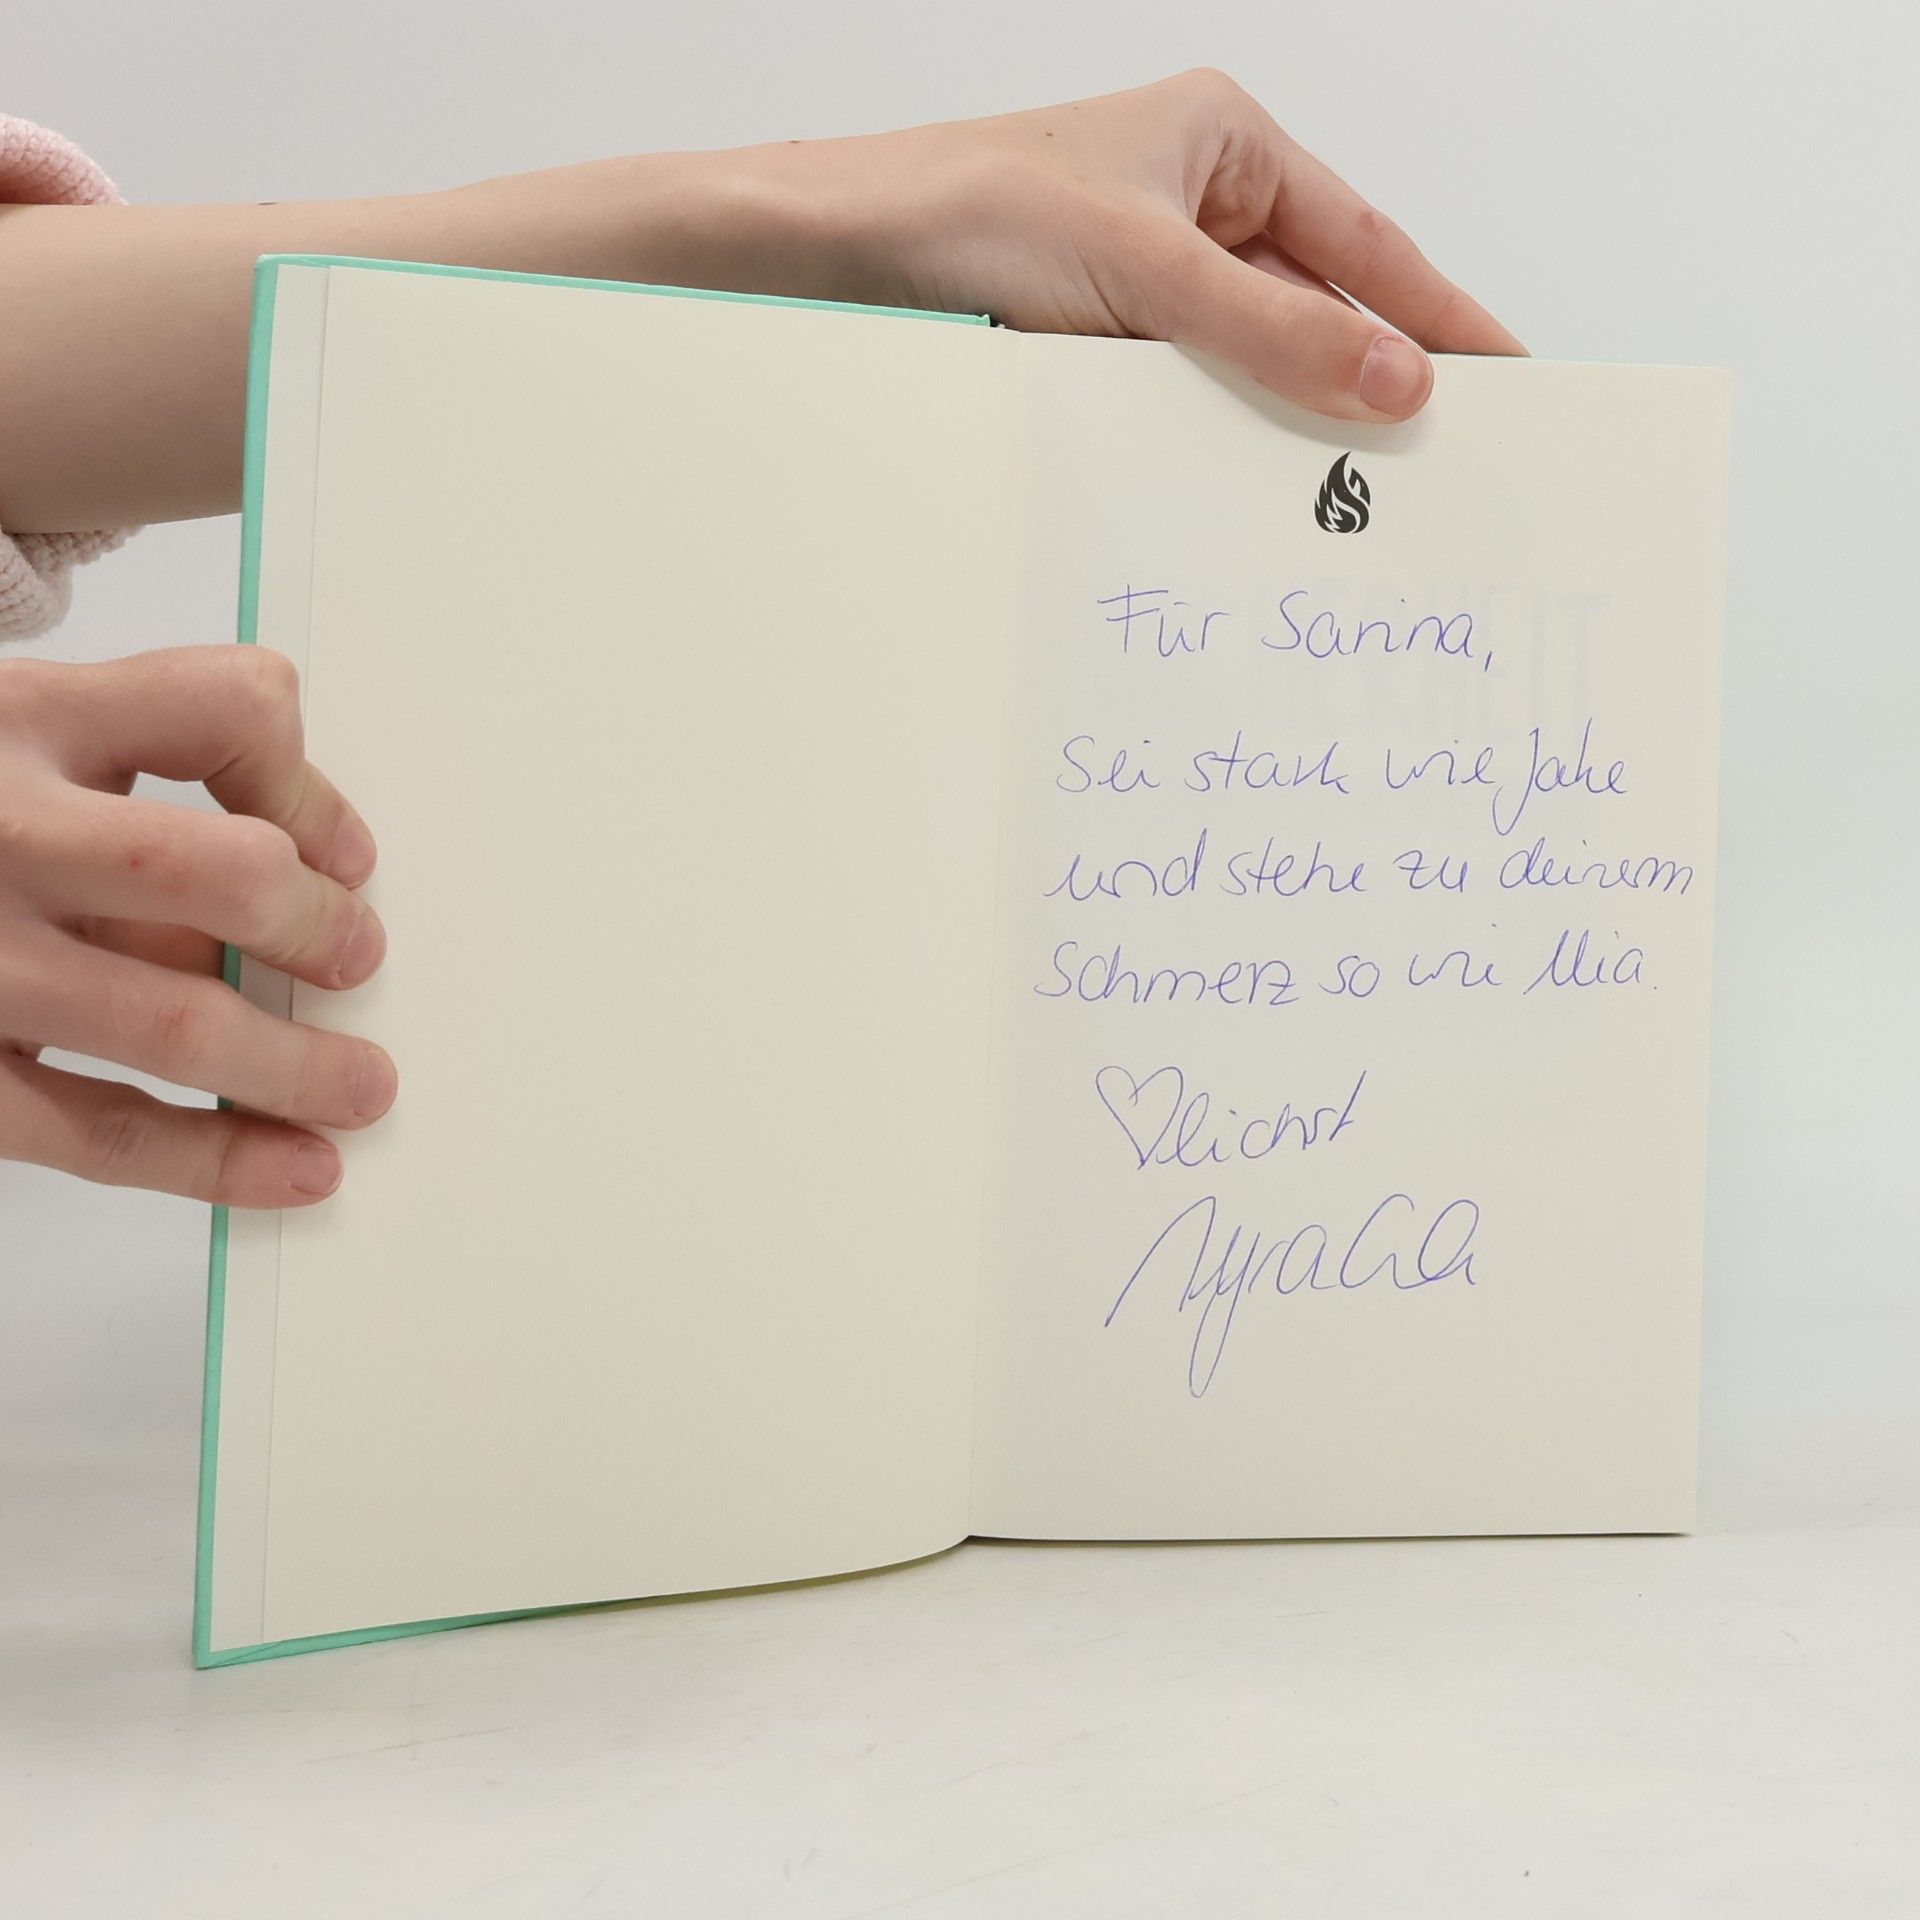 Für Sarina,
Sei stark wie Jake
und stehe zu deinem
Schmerz so wie Mia.
♡lichst